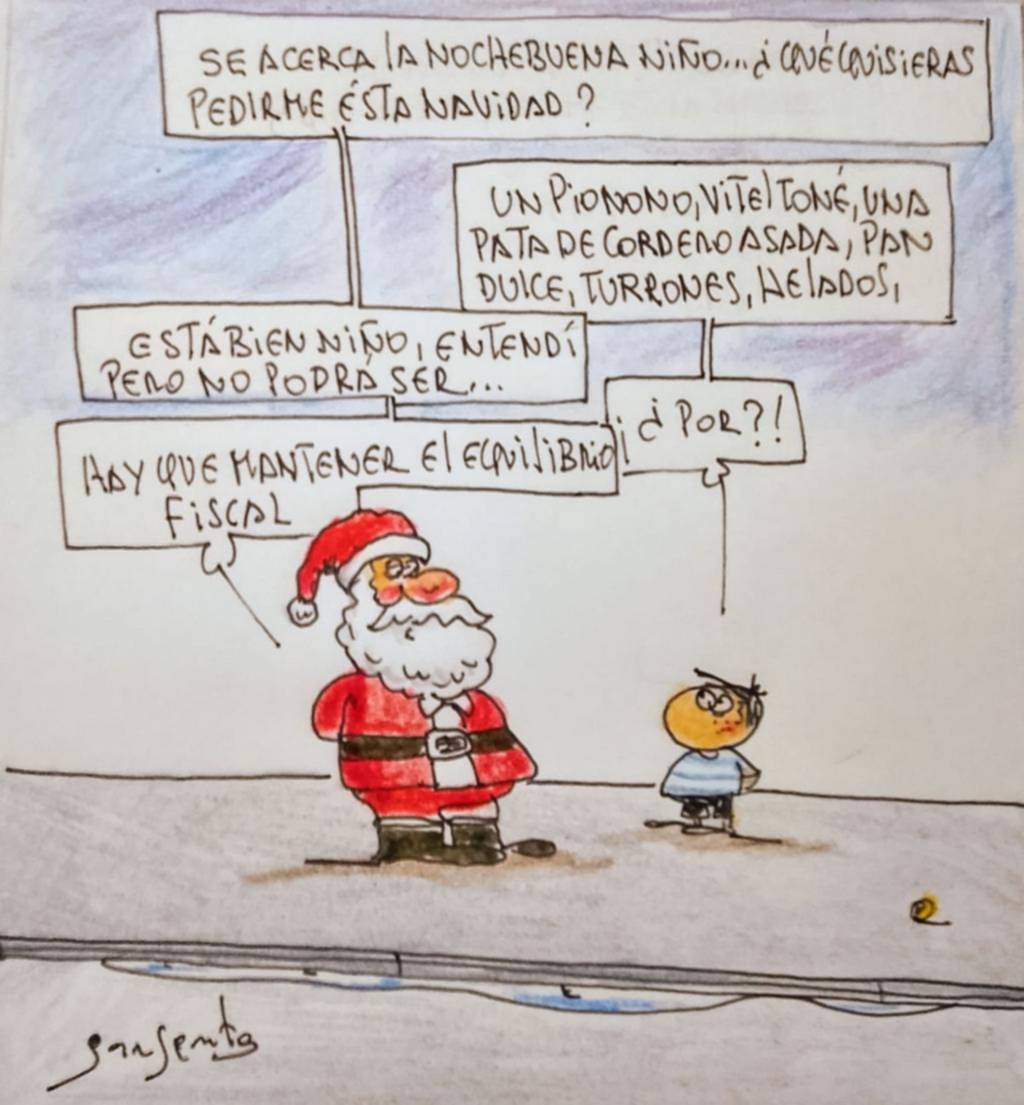 SE ACERCA lA NOCHEBUENA NIÑO...¿ QUÉ QUISIERAS
PEDIRME ÉSTA NAVIDAD ?
UN PIONONO, VITEl TONÉ, UNA
PATA DE CORDERO ASADA, PAN
DULCE, TURRONES, HElADOS,
ESTÁ BIEN NIÑO, ENTENDÍ
PERO NO PODRÁ SER...
¡¿ POR?!
HAY QUE MANTENER El EQUILIBRIO
FISCAL